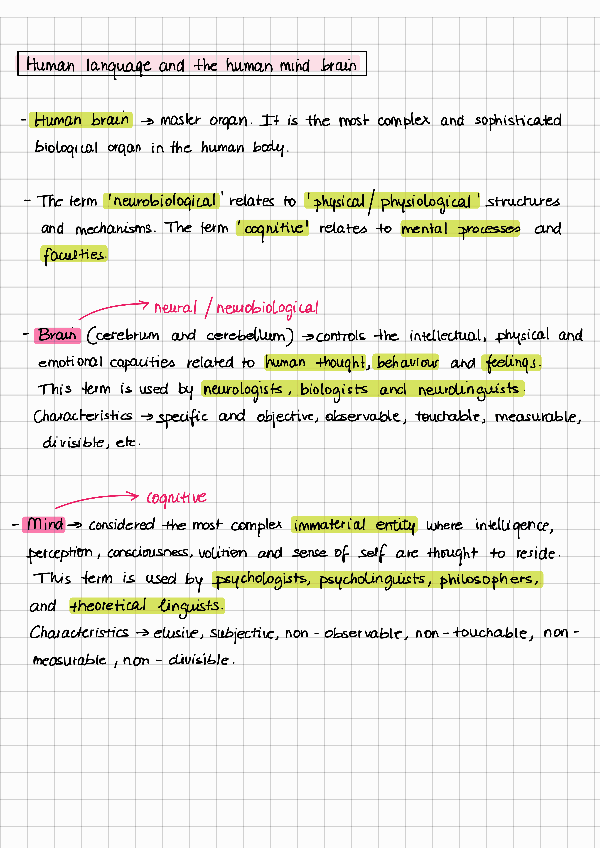 Human language and the human mind brain
- Human brain → master organ. It is the most complex and sophisticated
biological organ in the human body.
- The term 'neurobiological' relates to 'physical / physiological' structures
and mechanisms. The term 'cognitive' relates to mental processes and
faculties.
neural / neurobiological
- Brain (cerebrum and cerebellum) → controls the intellectual, physical and
emotional capacities related to human thought, behaviour and feelings.
This term is used by neurologists, biologists and neurolinguists.
Characteristics → specific and objective, observable, touchable, measurable,
divisible, etc.
cognitive
- Mind → considered the most complex immaterial entity where intelligence,
perception, consciousness, volition and sense of self are thought to reside.
This term is used by psychologists, psycholinguists, philosophers,
and theoretical linguists.
Characteristics → elusive, subjective, non - observable, non - touchable, non -
measurable, non - divisible.